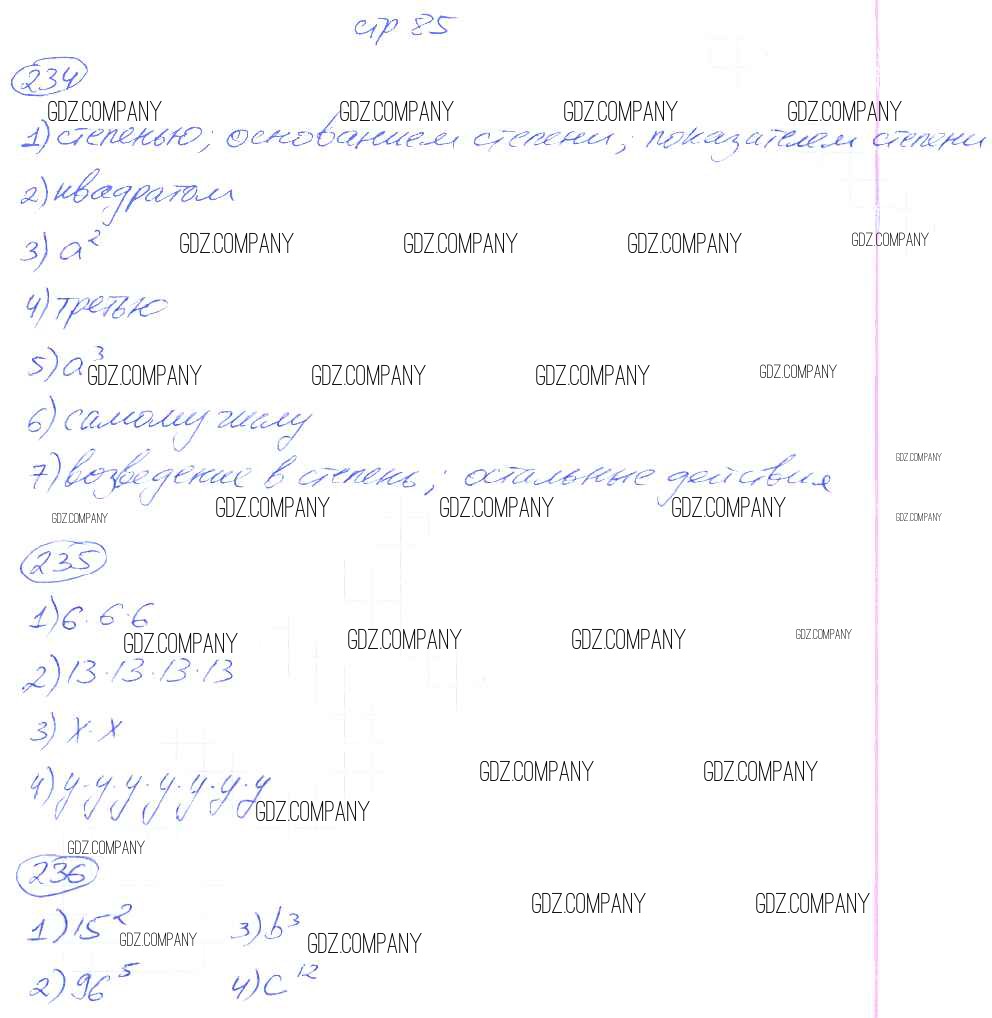 стр 85
234
GDZ.COMPANY GDZ.COMPANY GDZ.COMPANY GDZ.COMPANY
1) степенью; основанием степени; показателем степени
2) квадратом
3) a²
GDZ.COMPANY GDZ.COMPANY GDZ.COMPANY GDZ.COMPANY
4) третью
5) a³
GDZ.COMPANY GDZ.COMPANY GDZ.COMPANY GDZ.COMPANY
6) самому числу
GDZ.COMPANY
7) возведение в степень; остальные действия
GDZ.COMPANY GDZ.COMPANY GDZ.COMPANY GDZ.COMPANY GDZ.COMPANY
235
1) 6·6·6
GDZ.COMPANY GDZ.COMPANY GDZ.COMPANY GDZ.COMPANY
2) 13·13·13·13
3) x·x
GDZ.COMPANY GDZ.COMPANY
4) y·y·y·y·y·y·y
GDZ.COMPANY
GDZ.COMPANY
236
GDZ.COMPANY GDZ.COMPANY
1) 15² 3) b³
GDZ.COMPANY GDZ.COMPANY
2) 96⁵ 4) c¹²